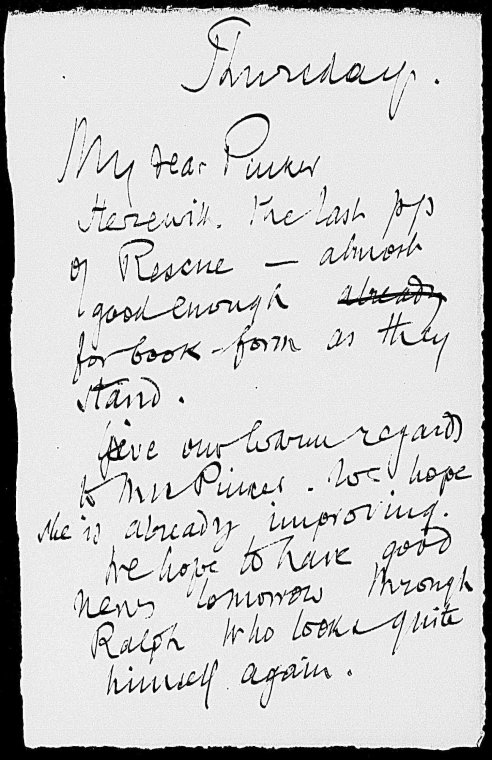 Thursday.
My dear Pinker
Herewith the last pps
of Rescue — almost
good enough already
for book-form as they
stand.
Give our warm regards
to Mrs Pinker. We hope
she is already improving.
We hope to have good
news tomorrow through
Ralph who looks quite
himself again.